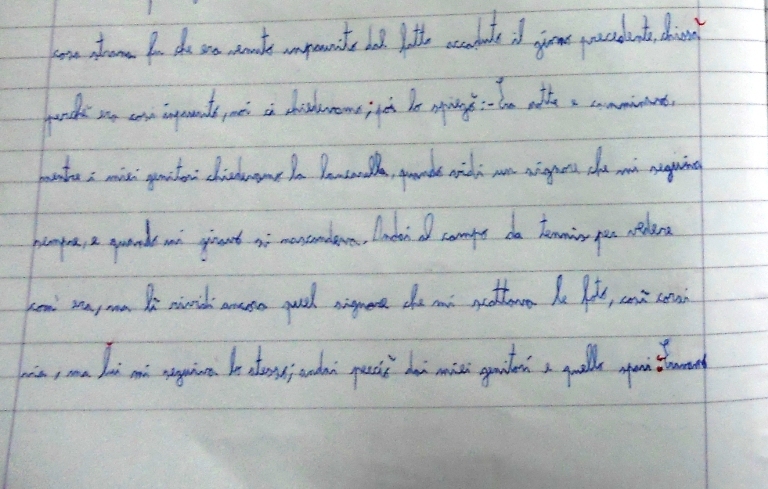 cosa strana fu che era venuto impaurito dal fatto accaduto il giorno precedente, chissà
perché era così impaurito, noi ci chiedevamo; poi lo spiegò:- Era notte e camminavo,
mentre i miei genitori chiedevano la, quando vidi un signore che mi seguiva
sempre, e quando mi giravo si nascondeva. Andai al campo da tennis per vedere
com'era, ma lì rividi ancora quel signore che mi scattava le foto, così corsi
via, ma lui mi seguiva lo stesso; andai perciò dai miei genitori e quello sparì.